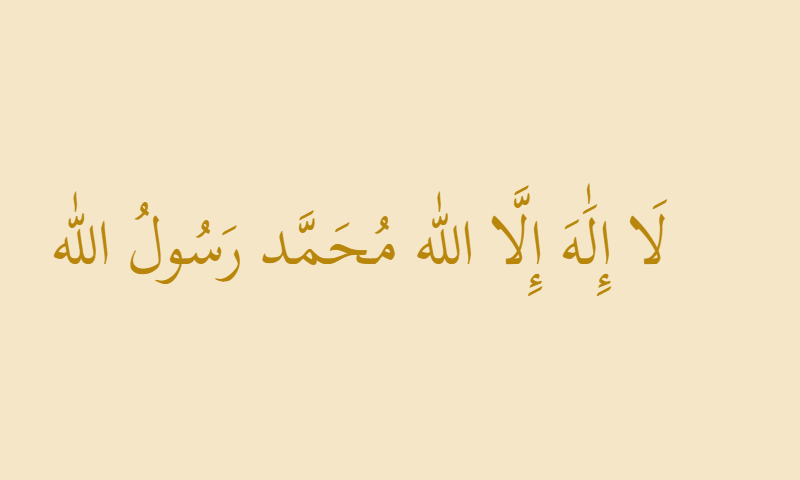 لَا إِلَٰهَ إِلَّا اللّٰه مُحَمَّد رَسُولُ اللّٰه